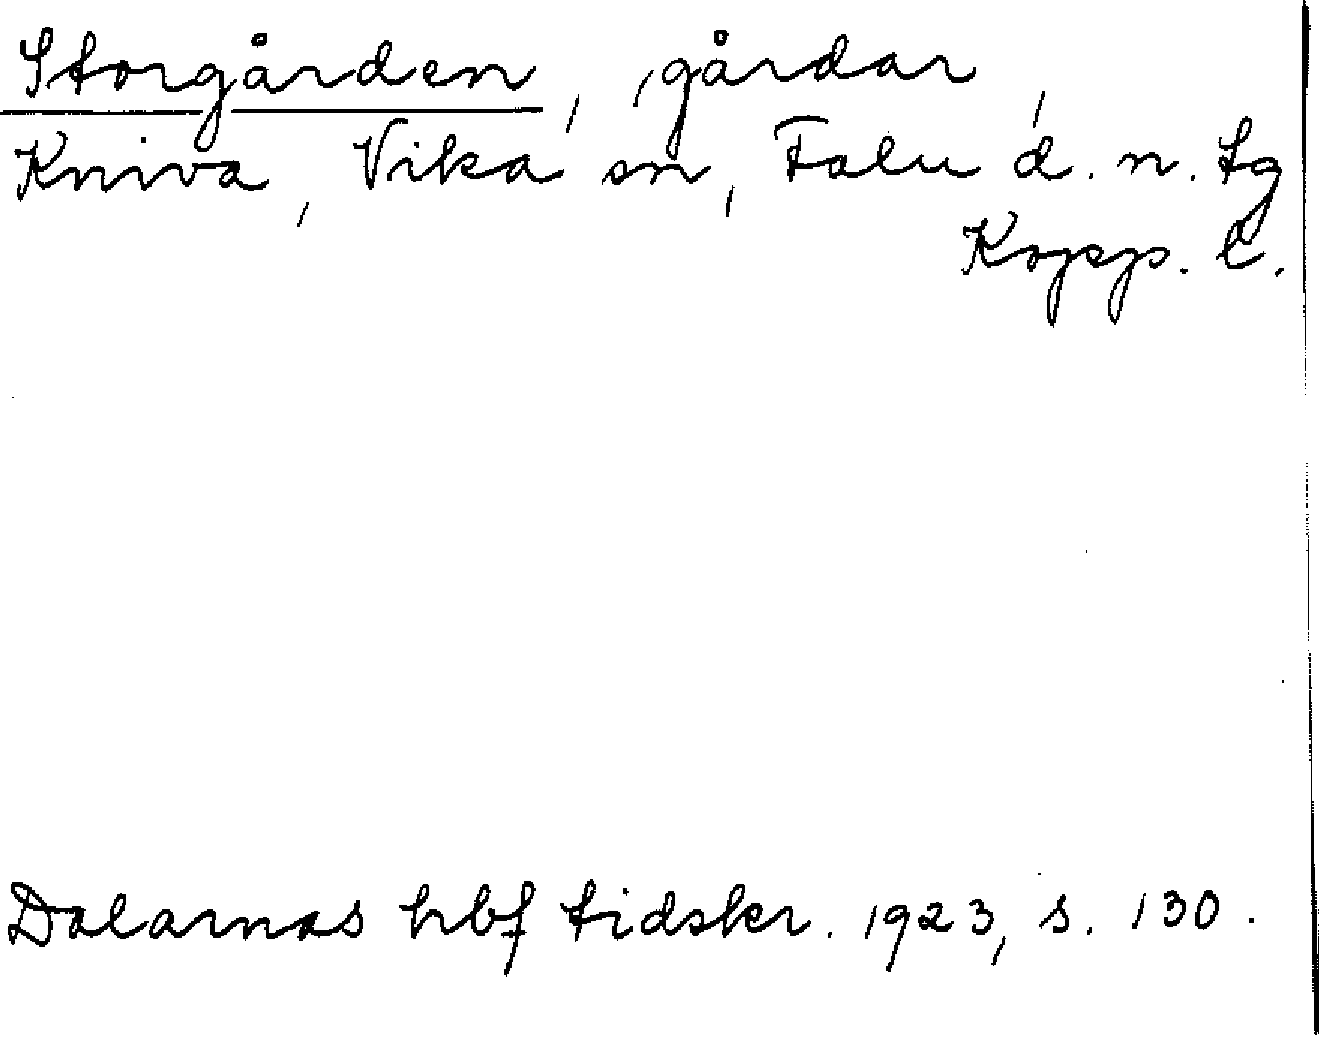 Storgården, gårdar,
Kniva, Vika sn, Falu d. n. tg
Kopp. l.
Dalarnas hbf tidskr. 1923, s. 130.